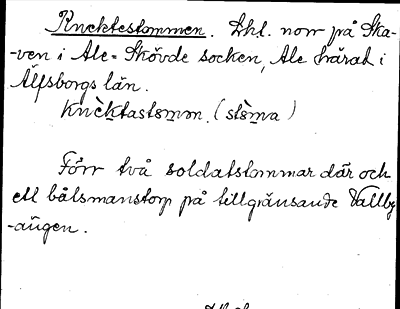 Knektestommen. Lht. norr på Ska-
-ven i Ale-Skövde socken, Ale härad i
Älfsborgs län.
knèktastomɷn. (stòma)
Förr två soldatstommar där och
ett båtsmanstorp på tillgränsande Vallby
-ängen.